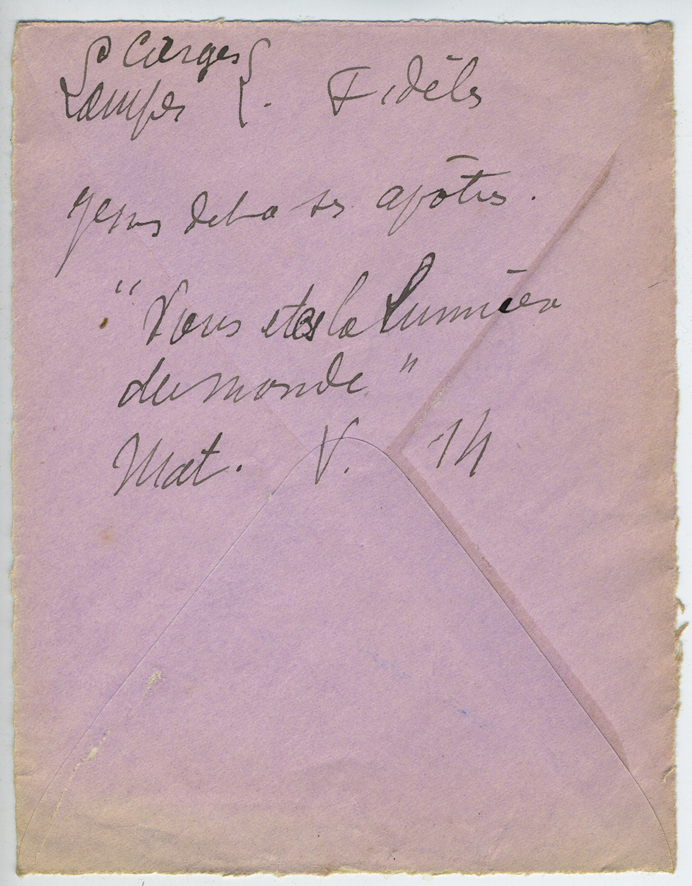 Cierges
Lampes . Fidèles
Jésus dit à ses apôtres.
"Vous etes la Lumière
du monde"
Mat. V. 14